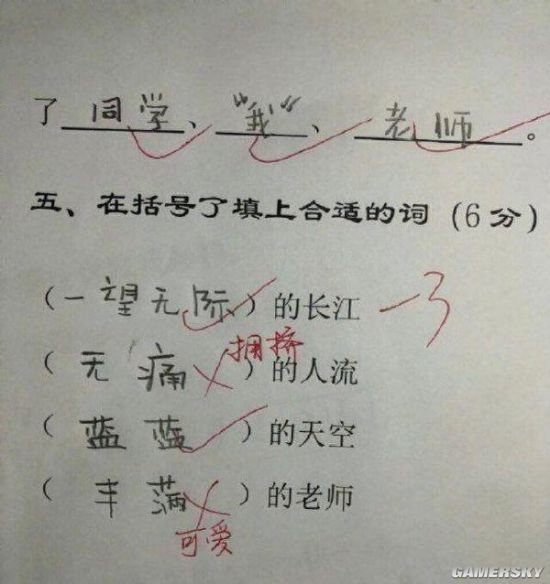 了同学、“我“、老师。
五、在括号了填上合适的词（6分）
（一望无际）的长江 -3
拥挤
（无痛）的人流
（蓝蓝）的天空
（丰满）的老师
可爱
GAMERSKY